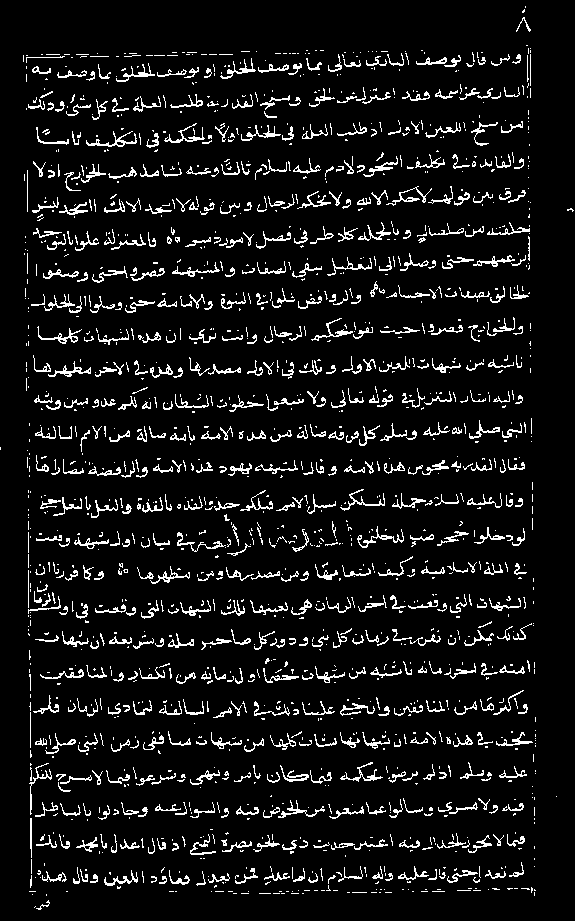 ٨
ومن قال يوصف الباري تعالى بما يوصف الخلق او يوصف الخلق بما وصف به
الباري عز اسمه فقد اعتزل عن الحق وسنخ القدرية طلب العلة في كل شئ وذلك
من سنخ اللعين الاول اذ طلب العلة في الخلق اولا والحكمة في التكليف ثانيا
والفايدة في تكليف السجود لادم عليه السلام ثالثا وعنه نشا مذهب الخوارج اذ لا
فرق بين قولهم لا حكم الا لله ولا يحكم الرجال وبين قوله لا اسجد الا لك ااسجد لبشر
خلقته من صلصال وبالجملة كلا طرفي قصد الامور ذميم والمعتزلة غلوا في التوحيد
بزعمهم حتى وصلوا الى التعطيل بنفي الصفات والمشبهة قصروا حتى وصفوا
الخالق بصفات الاجسام والروافض غلوا في النبوة والامامة حتى وصلوا الى الحلول
والخوارج قصروا حيث نفوا تحكيم الرجال وانت ترى ان هذه الشبهات كلها
ناشيه من شبهات اللعين الاول وتلك في الاول مصدرها وهذه في الاخر مظهرها
واليه اشار التنزيل في قوله تعالى ولا تتبعوا خطوات الشيطان انه لكم عدو مبين وشبه
النبي صلى الله عليه وسلم كل فرقه ضالة من هذه الامة بامة ضالة من الامم السالفة
فقال القدريه مجوس هذه الامة وقال المشبهه يهود هذه الامة والرافضة نصاراها
وقال عليه السلام جملة لتسلكن سبل الامم قبلكم حذو القذه بالقذة والنعل بالنعل حتى
لو دخلوا جحر ضب لدخلتموه المقدمة الرابعة في بيان اول شبهة وقعت
في الملة الاسلامية وكيف انشعابها ومن مصدرها ومن مظهرها وكما قررنا ان
الشبهات التي وقعت في اخر الزمان هي بعينها تلك الشبهات التي وقعت في اول الزمان
كذلك يمكن ان نقرر في زمان كل نبي ودور كل صاحب ملة وشريعة ان شبهات
امته في اخر زمانه ناشئه من شبهات خصماء اول زمانه من الكفار والمنافقين
واكثرها من المنافقين وان خفي علينا ذلك في الامم السالفة لتمادي الزمان فلم
يخف في هذه الامة ان شبهاتها نشات كلها من شبهات منافقي زمن النبي صلى الله
عليه وسلم اذ لم يرضوا بحكمه فيما كان يامر وينهى وشرعوا فيما لا مسرح للفكر
فيه ولا مسرى وسالوا عما منعوا من الخوض فيه والسوال عنه وجادلوا بالباطل
فيما لا يجوز الجدال فيه اعتبر حديث ذي الخويصرة التميمي اذ قال اعدل يا محمد فانك
لم تعدل حتى قال عليه السلام ان لم اعدل فمن يعدل فعاود اللعين وقال هذه